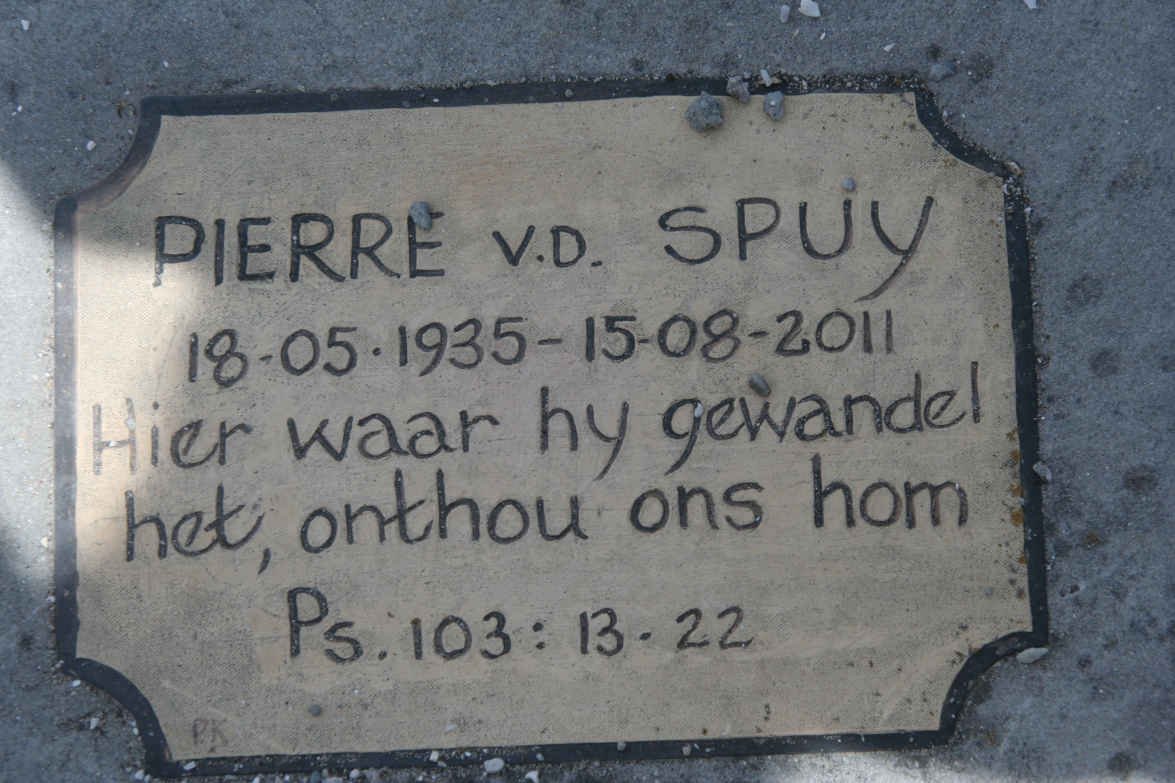 PIERRE v.D. SPUY
18-05·1935-15-08-2011
Hier waar hy gewandel
het, onthou ons hom
Ps. 103: 13·22
PK